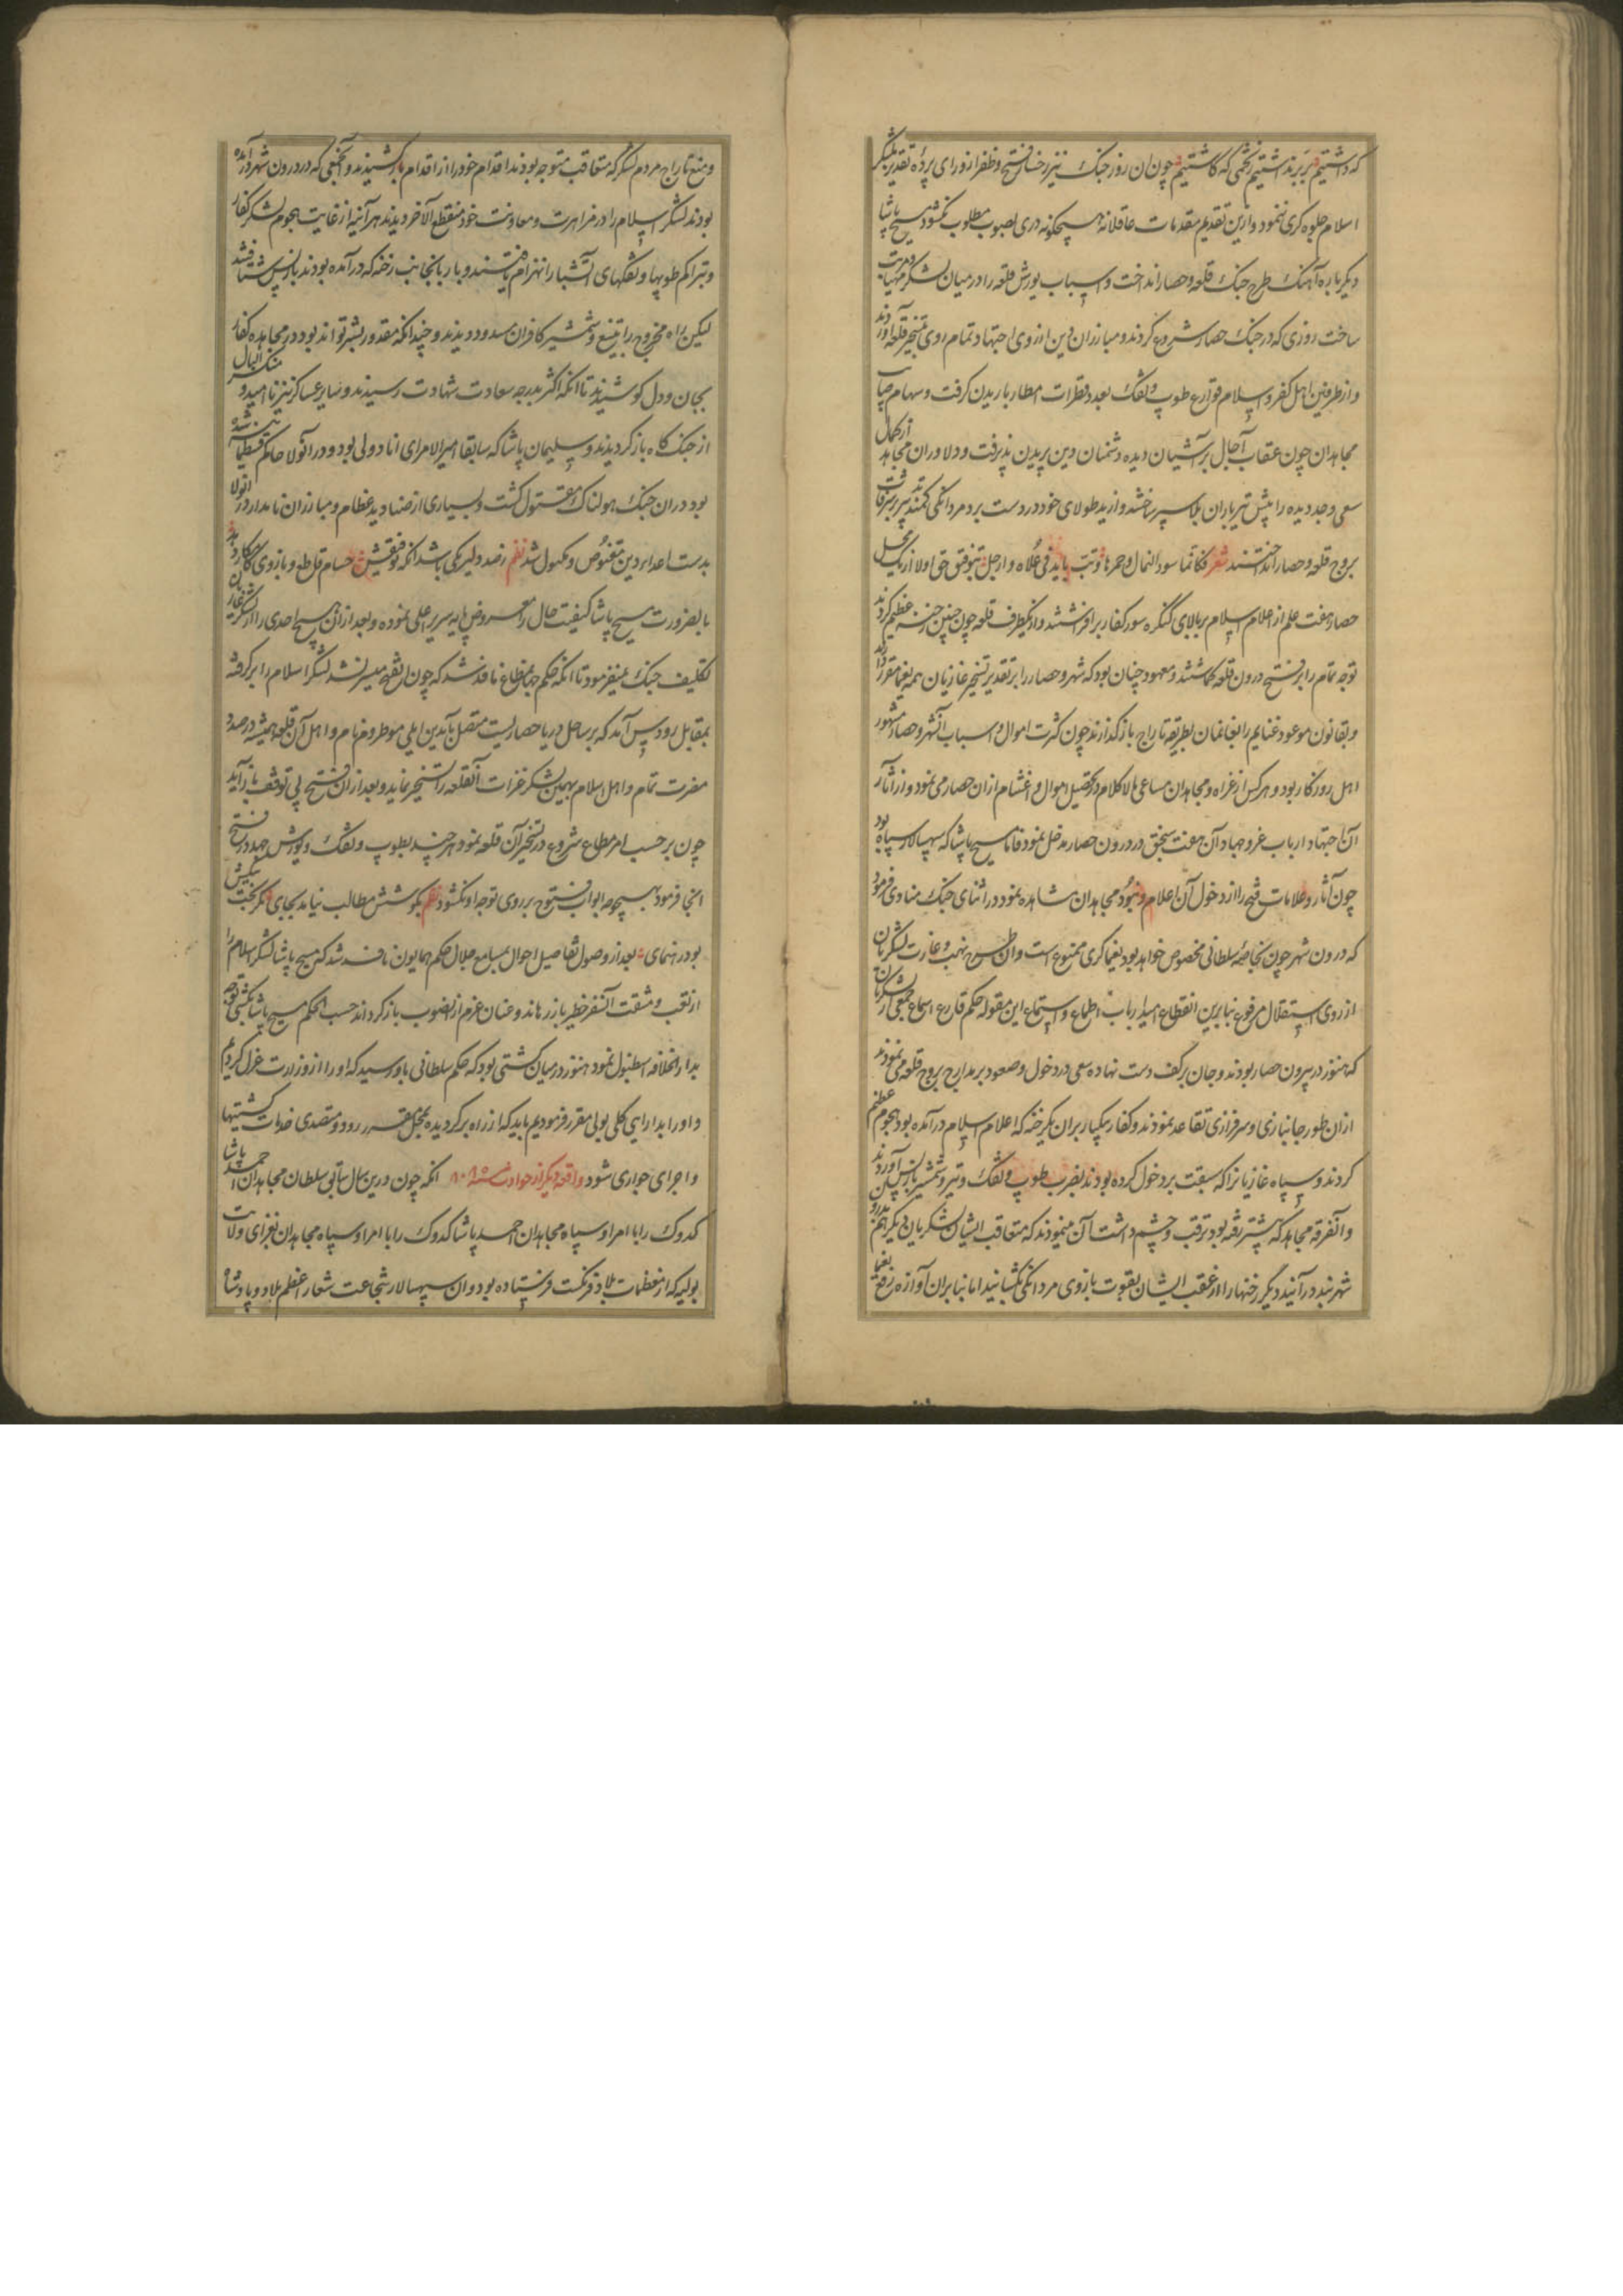 که داشتیم برند اشتیم تخمی که کاشتیم چون ان روز جنک نیز رخسار فتح و ظفر از ورای پردهٔ تقدیر بلشکر
اسلام جلوه کری ننمود و ازین تقدیم مقدمات عاقلانه هیچکونه دری بصوب مطلوب نکشود مسیح پاشا
دیکر باره آهنک طرح جنک قلعه و حصار انداخت و اسباب یورش قلعه را در میان لشکر مهیا و مرتب
ساخت روزی که در جنک حصار شروع کردند و مبارزان دین از روی اجتهاد تمام روی بتسخیر قلعه آوردند
و از طرفین اهل کفر و اسلام قوارع طوپ و تفنک بعدد قطرات امطار باریدن کرفت و سهام صایب
مجاهدان چون عقاب آجال بر آشیان دیده دشمنان دین پریدن پذیرفت و دلاوران مجاهد از کمال
سعی و جد دیده را پیش تیرباران بلا سپر ساختند و از ید طولای خود در دست برد مردانکی کمند بر شرفات
بروج قلعه و حصار انداختند شعر فکانما سود النمال و حمرها توتب باید فی علاه و ارجل بتوفیق حق اولا از یک
حصار هفت علم از اعلام اسلام بر بالای کنکره سور کفار برافراشتند و از یکطرف قلعه چون چنین رخنه عظیم کردند
توجه تمام را بر فتح درون قلعه کماشتند و معهود چنان بود که شهر و حصار را بر تقدیر تسخیر غازیان همه یغما مقرر دارند
و بقانون موعود غنایم را بغانمان بطریقه تاراج بازکذارند چون کثرت اموال و اسباب آنشهر و حصار مشهور
اهل روزکار بود و هر کس از غزاه و مجاهدان مساعی مالاکلام در تحصیل اموال و اغتنام ازان حصار می نمود و از آثار
آن اجتهاد ارباب غزو و جهاد آن هفت سنجق در درون حصار مدخل نمود فاما مسیح پاشا که سپهسالار سپاه بود
چون آثار و علامات فتح را از دخول آن اعلام و جنود مجاهدان مشاهده نمود در اثنای جنک منادی فرمود
که درون شهر چون بخاصهٔ سلطانی مخصوص خواهد بود یغماکری ممنوع است و ان طرح نهب و غارت لشکریان
از روی استقلال مرفوع بنابرین انقطاع امید ارباب اطماع و استماع این مقوله حکم قارع اسماع جمعی از لشکریان
که هنوز در بیرون حصار بودند و جان بر کف دست نهاده سعی در دخول و صعود بر مدارج بروج قلعه می نمودند
ازان طور جانبازی و سرفرازی تقاعد نمودند و کفار بیکبار بران یک رخنه که اعلام اسلام درآمده بود هجوم عظیم
کردند و سپاه غازیانرا که سبقت بر دخول کرده بودند بضرب طوپ و تفنک و تیر و شمشیر بازپس آوردند
و آنفرقه مجاهد که پیشتر رفته بود ترقب و چشم داشت آن مینمودند که متعاقب ایشان لشکریان دیکر هم
شهربند درآیند و دیکر رخنها را از عقب ایشان بقوت بازوی مردانکی بکشایند اما بنابران آوازه رفع یغما
و منع تاراج مردم لشکر که متعاقب متوجه بودند اقدام خود را از اقدام بازکشیدند و آنجمعی که در درون شهر درآمده
بودند لشکر اسلام را در مزاهرت و معاونت خود منقطع الآخر دیدند هرآینه از غایت هجوم لشکر کفار
و تراکم طوپها و تفنکهای آتشبار انهزام یافتند و بار بانجانب رخنه که درآمده بودند بازپس شتافتند
لیکن راه خروج را بتیغ و شمشیر کافران مسدود دیدند و چندانکه مقدور بشر تواند بود در مجاهده کفار
بجان و دل کوشیدند تا انکه اکثر بدرجه سعادت شهادت رسیدند و سایر عساکر نیز ناامید و شکسته بال
از جنک کاه بازکردیدند و سلیمان پاشا که سابقا امیرالامرای اناطولی بود و در آنولا حاکم
بود دران جنک هولناک مقتول کشت و بسیاری از صنادید عظام و مبارزان نامدار در آنولا
بدست اعدای دین مقبوض و مکبول شد نظم نه صد دلیر یکی باشد انکه توفیقش حسام قاطع و بازوی کامکار دهد
بالضرورت مسیح پاشا کیفیت حال را معروض پایه سریر اعلی نموده و بعد ازان هیچ احدی را از لشکر غازیان
تکلیف جنک نمیفرمود تا انکه حکم جهانمطاع نافذ شد که چون ان فتح میسر نشد لشکر اسلام را برکرفته
بمقابل رودس آمد که بر ساحل دریا حصاریست متصل بآیدین ایلی موطروم نام و اهل آن قلعه همیشه در صدد
مضرت تمام و اهل اسلام بهمین لشکر غزات آنقلعه را تسخیر نماید و بعد از ان فتح بی توقف بازآید
چون بر حسب امر مطاع شروع در تسخیر آن قلعه نمود هر چند بطوپ و تفنک و یورش جهد در فتح
انجا فرمود بهیچوجه ابواب فتوح بر روی توجه او نکشود نظم بکوشش مطالب نیاید بجای مکر بخت نیکش
بود رهنمای بعد از وصول تفاصیل احوال بمسامع جلال حکم همایون نافذ شد که مسیح پاشا لشکر اسلام را
از تعب و مشقت آنسفر خطیر بازرهاند و عنان عزم ازانصوب بازکرداند حسب الحکم مسیح پاشا بکشتی توجه
بدار الخلافه اسطنبول نمود هنوز در میان کشتی بود که حکم سلطانی باو رسید که او را از وزارت عزل کردیم
و او را بدارایی کلی بولی مقرر فرمودیم باید که از راه برکردیده بمحل مقرر رود و متصدی خدمات کشتیها
و اجرای جواری شود واقعه دیکر از حوادث سنه ٨٨٥ انکه چون درین سال سابق سلطان مجاهدان احمد پاشا
کدوک را با امرا و سپاه مجاهدان احمد پاشا کدوک را با امرا و سپاه مجاهدان بغزای ولایت
پولیه که از معظمات بلاد فرنکست فرستاده بود و ان سپهسالار شجاعت شعار اعظم بلاد و پادشاه